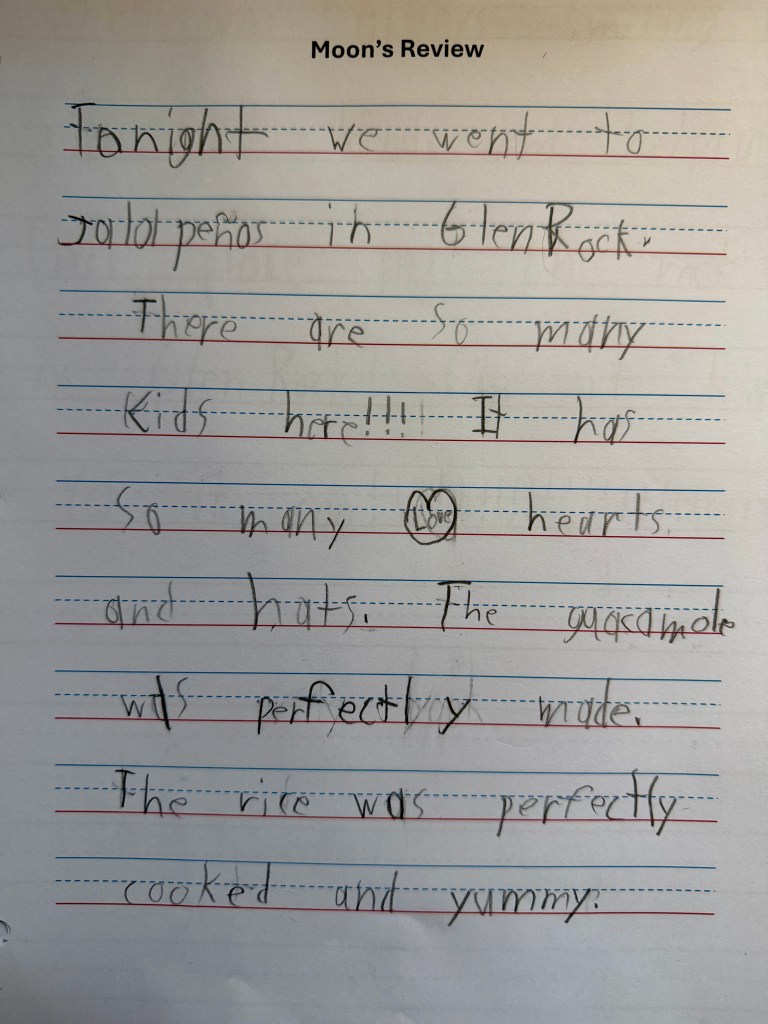 Moon's Review
Tonight we went to
Jalolpeños in Glen Rock.
There are so many
Kids here!!! It has
So many Love hearts
and hats. The guacamole
was perfectly made.
The rice was perfectly
cooked and yummy.